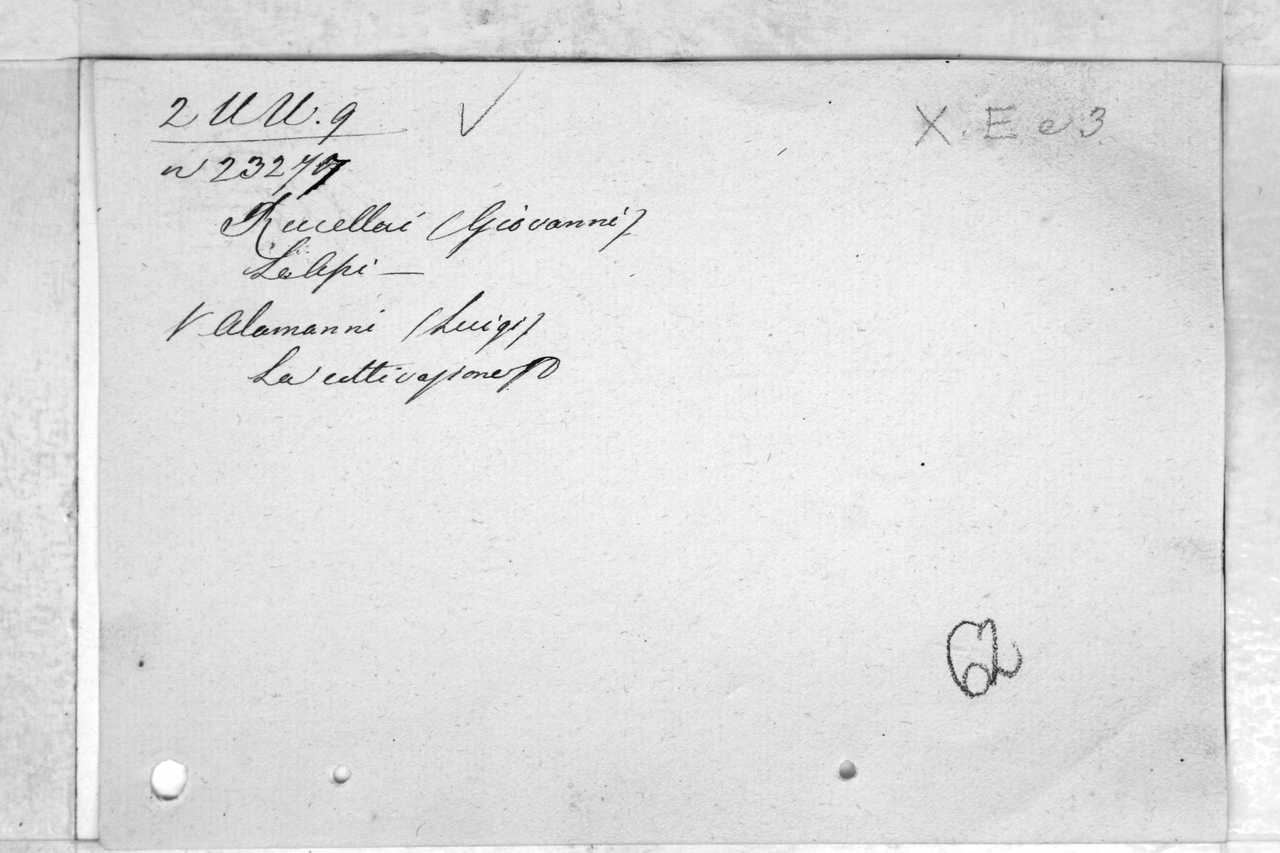 2 UU. 9 X. E e 3
n 23277
Rucellai (Giovanni)
Le Api —
V Alamanni (Luigi)
La coltivazione
62